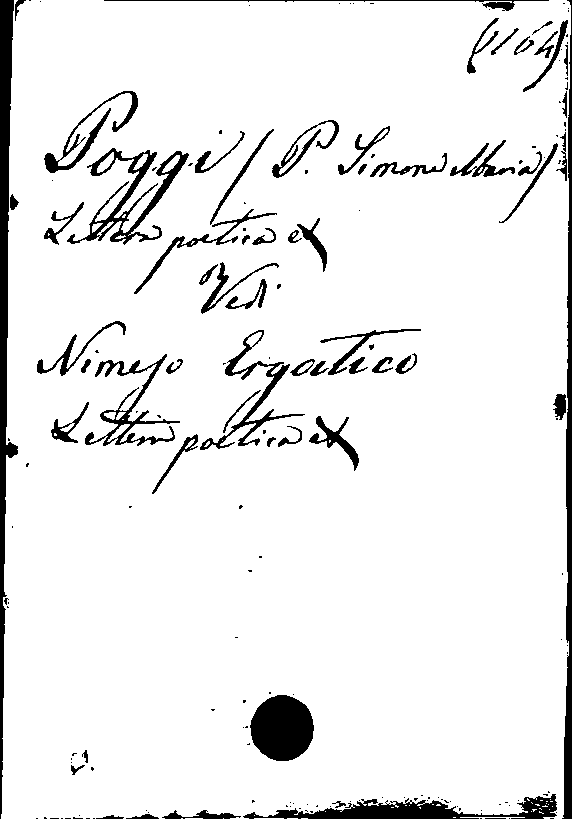 (1164)
Poggi (P. Simone Maria)
Lettera poetica et
Vedi
Nimeso Ergatico
Lettera poetica et